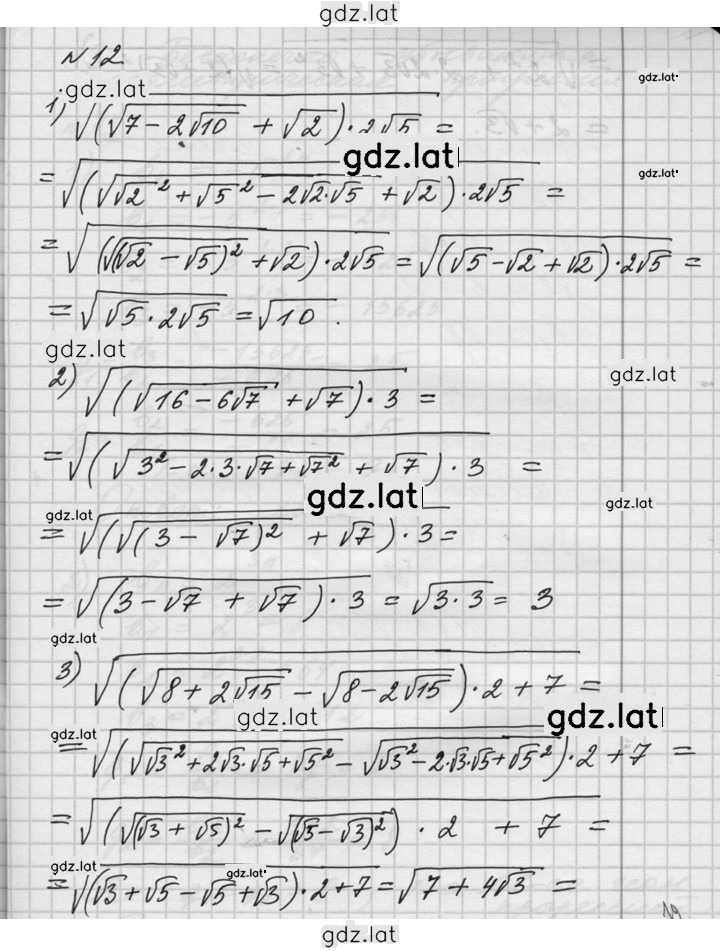 gdz.lat
№12
gdz.lat
gdz.lat
1) √((√(7 - 2√10) + √2) · 2√5) =
gdz.lat
gdz.lat
= √((√(√2² + √5² - 2√2·√5) + √2) · 2√5) =
= √((√((√2 - √5)²) + √2) · 2√5) = √((√5 - √2 + √2) · 2√5) =
= √(√5 · 2√5) = √10.
gdz.lat
gdz.lat
2) √((√(16 - 6√7) + √7) · 3) =
= √((√(3² - 2·3·√7 + √7²) + √7) · 3) =
gdz.lat
gdz.lat
gdz.lat
= √((√((3 - √7)²) + √7) · 3) =
= √((3 - √7 + √7) · 3) = √(3·3) = 3
gdz.lat
3) √((√(8 + 2√15) - √(8 - 2√15)) · 2 + 7) =
gdz.lat
gdz.lat
= √((√(√3² + 2√3·√5 + √5²) - √(√3² - 2·√3·√5 + √5²)) · 2 + 7) =
= √((√((√3 + √5)²) - √((√5 - √3)²)) · 2 + 7) =
gdz.lat
gdz.lat
= √((√3 + √5 - √5 + √3) · 2 + 7) = √(7 + 4√3) =
gdz.lat